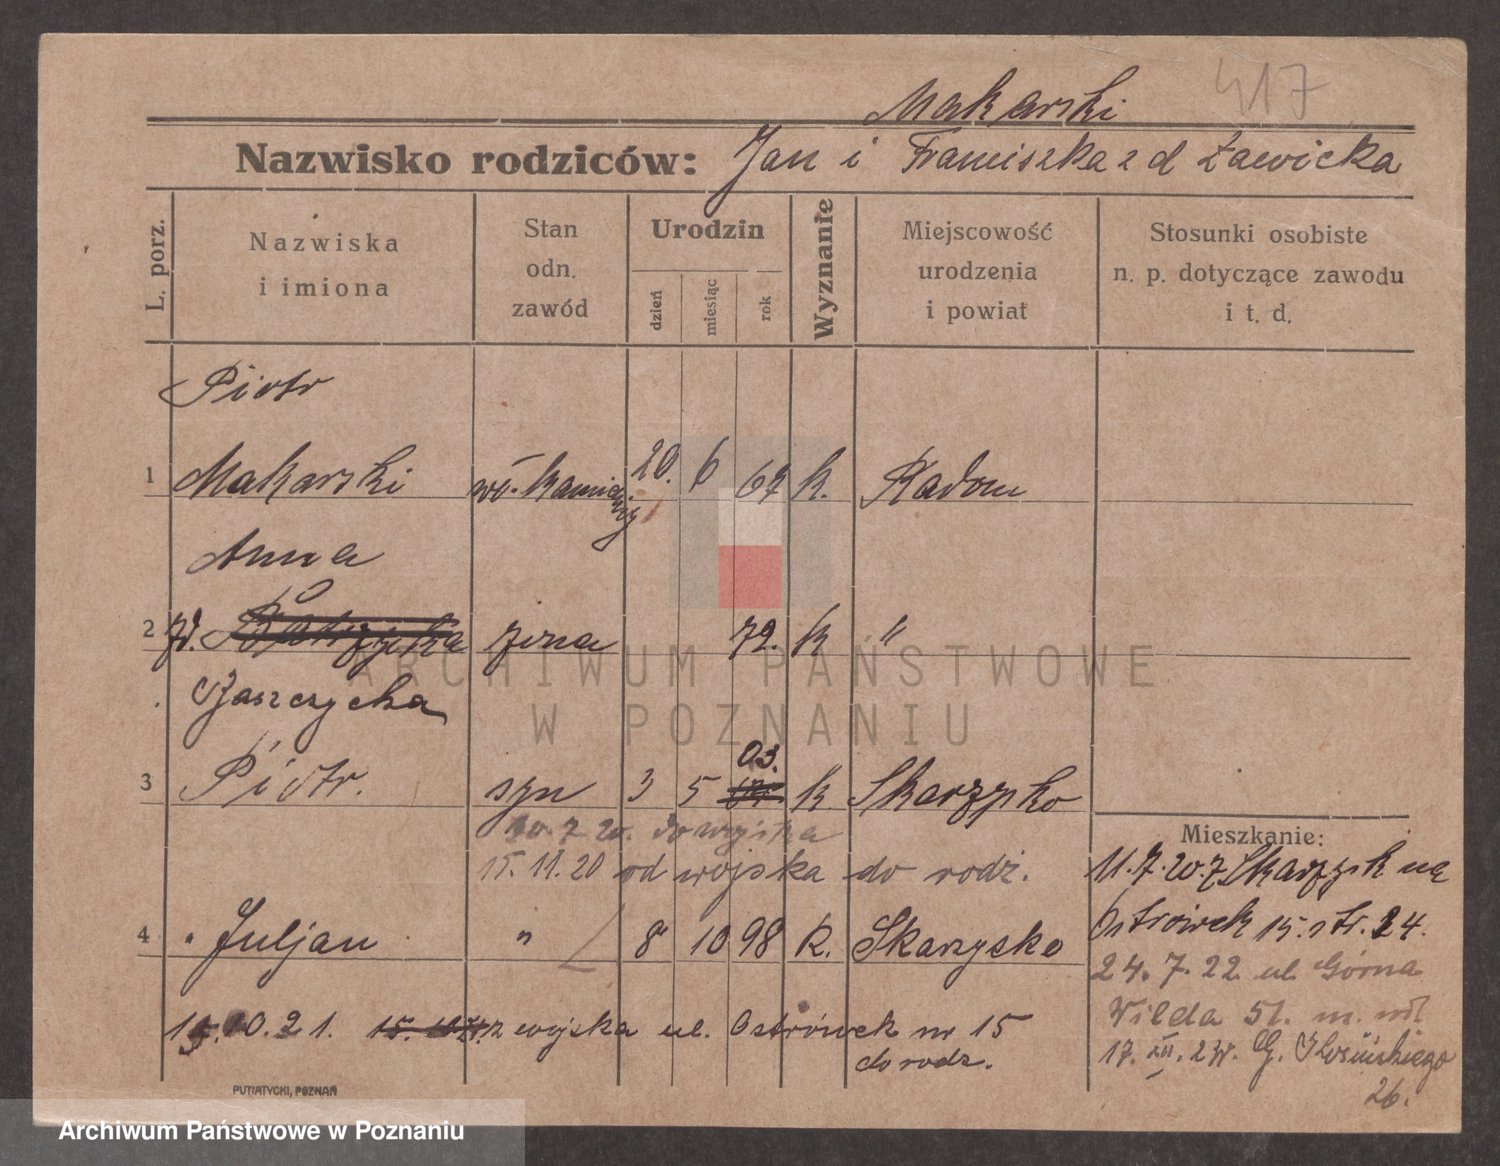 Makarski 417
Nazwisko rodziców: Jan i Franciszka z d Zawicka
L. porz.
Nazwiska
i imiona
Stan
odn.
zawód
Urodzin
dzień
miesiąc
rok
Wyznanie
Miejscowość
urodzenia
i powiat
Stosunki osobiste
n. p. dotyczące zawodu
i t. d.
Piotr
1 Makarski wł. kamienicy 20. 6 67 k. Radom
Anna
2 zd. żona 72. k "
Jaszczycha
03.
3 Piotr. syn 3 5 k. Skarżysko
10.7.20. do wojska
15.11.20 od wojska do rodz.
Mieszkanie:
11.7.20. z Skarżysk na
Ostrówek 15. str. 24.
4 " Juljan " 8 10 98 k. Skarzysko
24.7.22 ul Górna
Wilda 51. m. wł.
15.10.21. z wojska ul. Ostrówek nr 15
do rodz.
17. XII. 2
G.
26.
PUTIATYCKI, POZNAŃ
ARCHIWUM PAŃSTWOWE
W POZNANIU
Archiwum Państwowe w Poznaniu